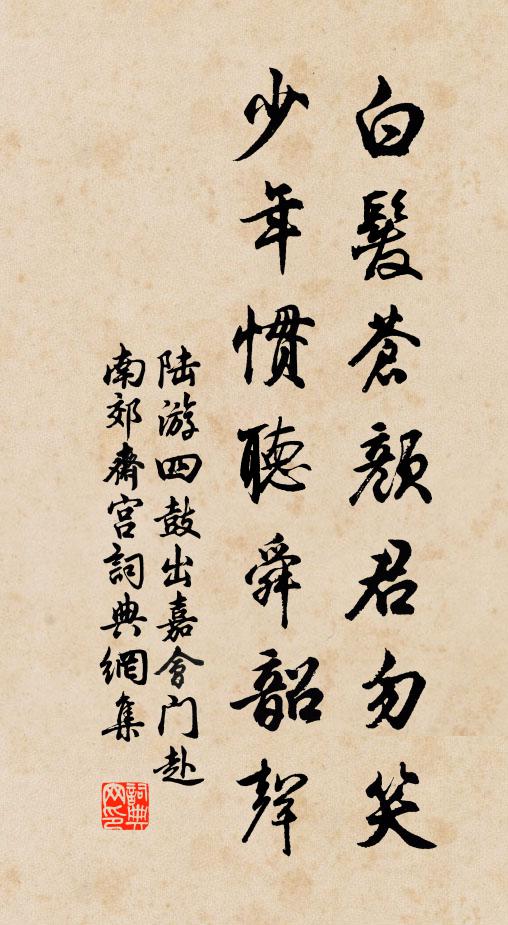 白髮蒼顏君勿笑
少年慣聽舜韶聲
陆游四鼓出嘉會门赴
南郊齋宮詞典網集
詞典
网印